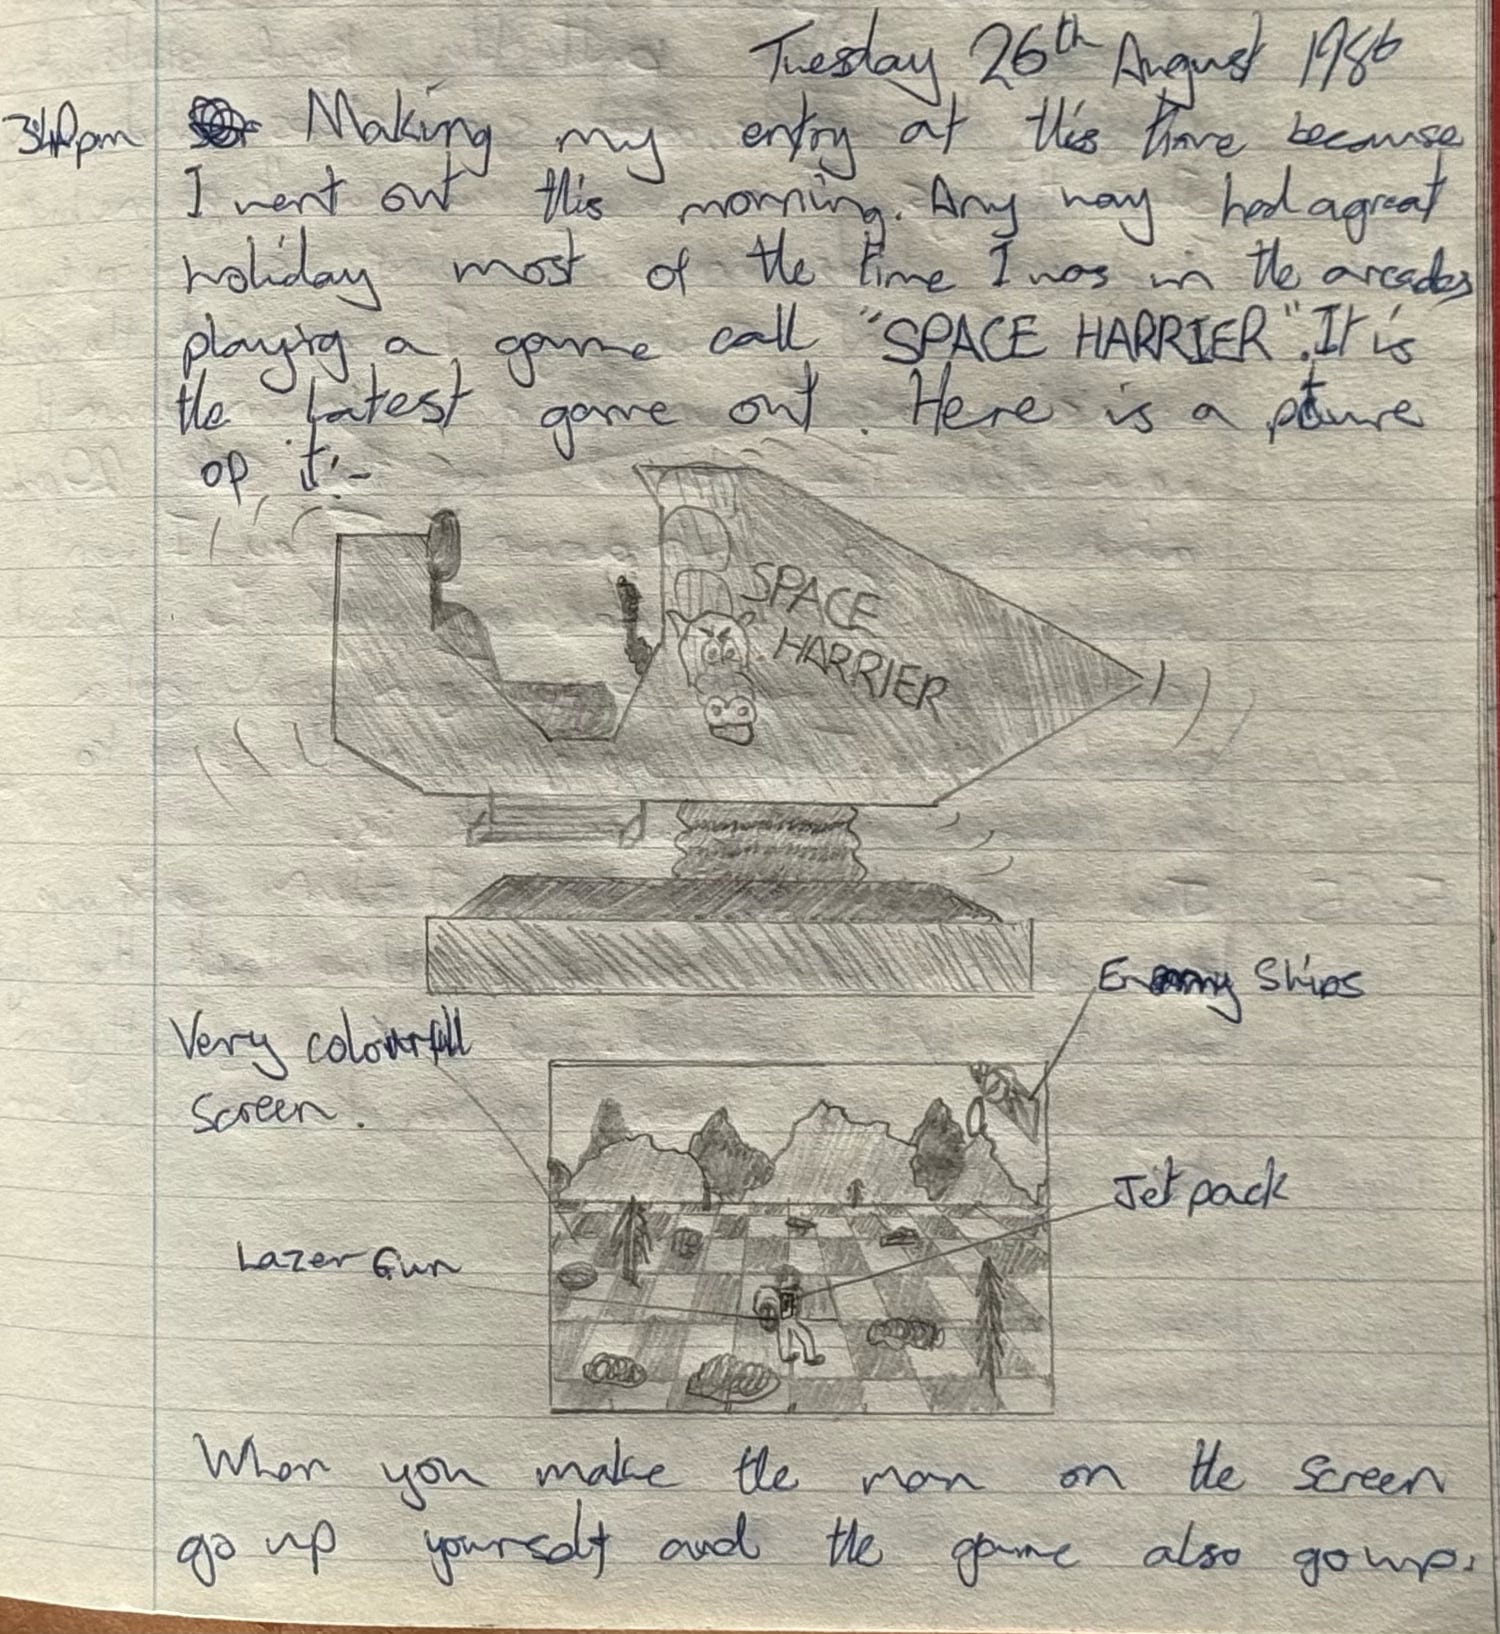 Tuesday 26th August 1986
3:40pm Making my entry at this time because
I went out this morning. Any way had a great
holiday most of the time I was in the arcades
playing a game call "SPACE HARRIER". It is
the latest game out. Here is a picture
op it:-
SPACE
HARRIER
Enemy Ships
Very colourfull
Screen.
Jet pack
Lazer Gun
When you make the man on the screen
go up yourself and the game also go up.